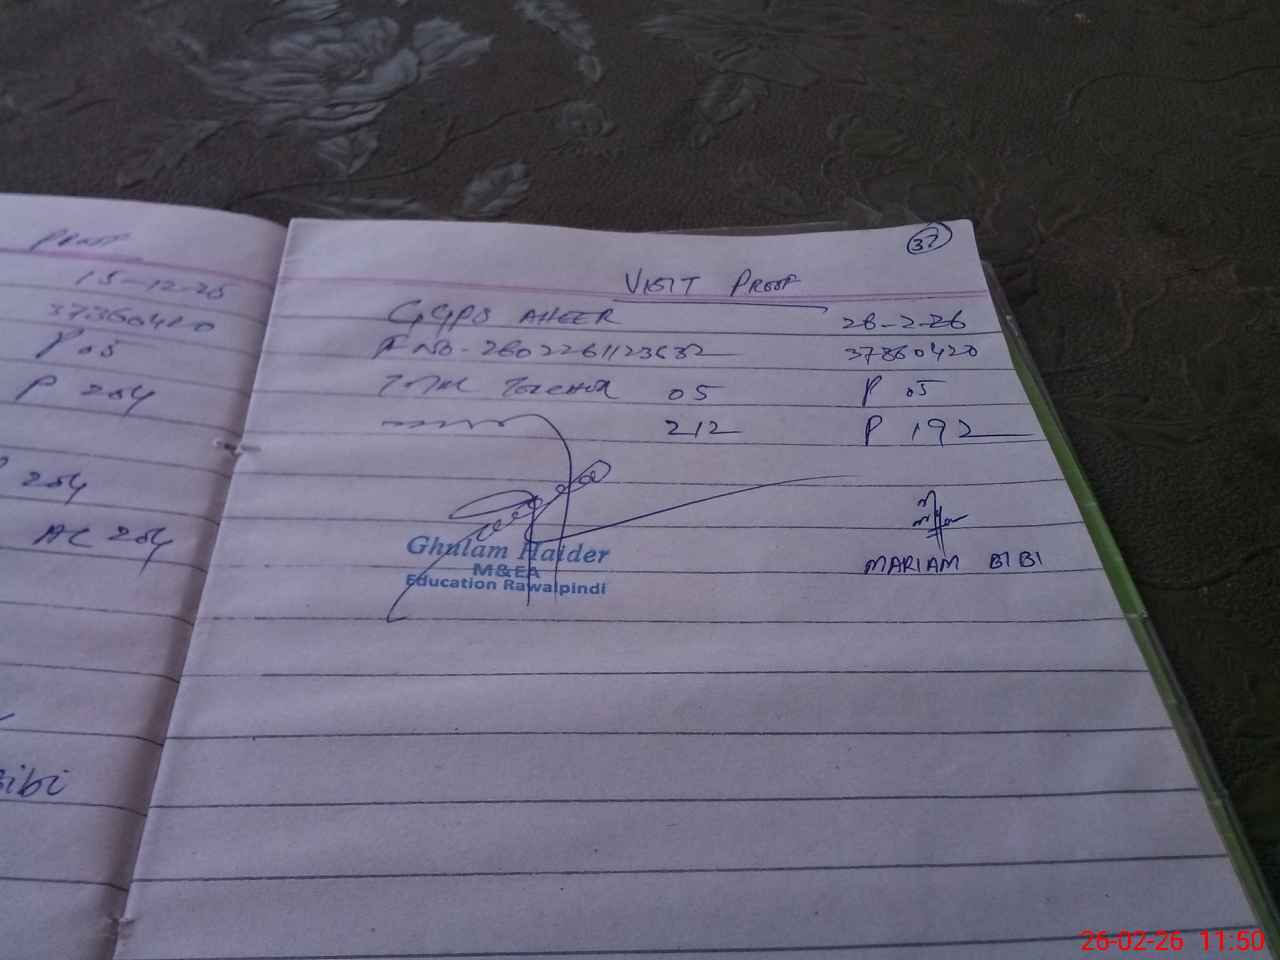 Proof
15-12-25
37360420
P 05
P 254
254
AC 254
Bibi
37
VISIT PROOF
GGPS AHEER 26-2-26
37360420
Total Teacher 05 P 05
212 P 192
Ghulam Haider
M&EA
Education Rawalpindi
MARIAM BIBI
26-02-26 11:50